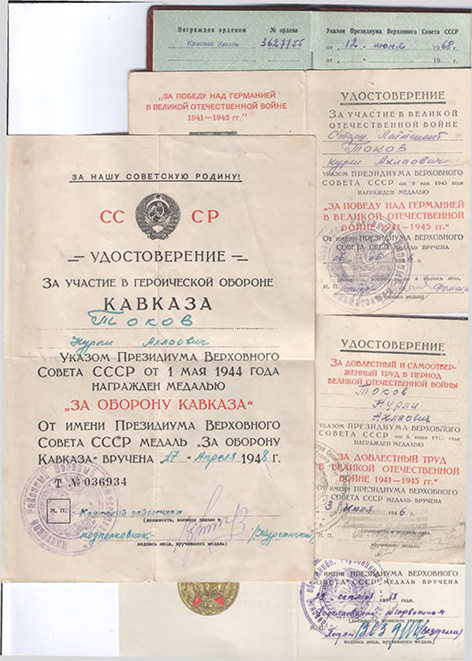 Награжден орденом
№ ордена
Указом Президиума Верховного Совета СССР
Красной Звезды
3627755
от „12“ июня 1968 г.
от 19 г.
„ЗА ПОБЕДУ НАД ГЕРМАНИЕЙ
В ВЕЛИКОЙ ОТЕЧЕСТВЕННОЙ ВОЙНЕ
1941—1945 гг.“
УДОСТОВЕРЕНИЕ
ЗА УЧАСТИЕ В ВЕЛИКОЙ
ОТЕЧЕСТВЕННОЙ ВОЙНЕ
Токов
Нурли Ахлаович
УКАЗОМ ПРЕЗИДИУМА ВЕРХОВНОГО
СОВЕТА СССР от 9 мая 1945 года
НАГРАЖДЕН МЕДАЛЬЮ
„ЗА ПОБЕДУ НАД ГЕРМАНИЕЙ
В ВЕЛИКОЙ ОТЕЧЕСТВЕННОЙ
ВОЙНЕ 1941—1945 гг.“
ОТ ИМЕНИ ПРЕЗИДИУМА ВЕРХОВНОГО
СОВЕТА СССР МЕДАЛЬ ВРУЧЕНА
ЗА НАШУ СОВЕТСКУЮ РОДИНУ!
СС СР
УДОСТОВЕРЕНИЕ
ЗА УЧАСТИЕ В ГЕРОИЧЕСКОЙ ОБОРОНЕ
КАВКАЗА
Токов
Нурли Ахлаович
УКАЗОМ ПРЕЗИДИУМА ВЕРХОВНОГО
СОВЕТА СССР ОТ 1 МАЯ 1944 ГОДА
НАГРАЖДЕН МЕДАЛЬЮ
„ЗА ОБОРОНУ КАВКАЗА“
ОТ ИМЕНИ ПРЕЗИДИУМА ВЕРХОВНОГО
СОВЕТА СССР МЕДАЛЬ „ЗА ОБОРОНУ
КАВКАЗА“ ВРУЧЕНА 17 Апреля 1948 г.
Т № 036934
М. П.
(должность, военное звание и
подполковник
подпись лица, вручившего медаль)
УДОСТОВЕРЕНИЕ
ЗА ДОБЛЕСТНЫЙ И САМООТВЕР-
ЖЕННЫЙ ТРУД В ПЕРИОД
ВЕЛИКОЙ ОТЕЧЕСТВЕННОЙ ВОЙНЫ
Токов
Нурли
Ахлаович
УКАЗОМ ПРЕЗИДИУМА ВЕРХОВНОГО
НАГРАЖДЕН МЕДАЛЬЮ
„ЗА ДОБЛЕСТНЫЙ ТРУД
В ВЕЛИКОЙ ОТЕЧЕСТВЕННОЙ
ВОЙНЕ 1941—1945 гг.“
ОТ ИМЕНИ ПРЕЗИДИУМА ВЕРХОВНОГО
СОВЕТА СССР МЕДАЛЬ ВРУЧЕНА
ПРЕЗИДИУМА ВЕРХОВНОГО
СССР МЕДАЛЬ ВРУЧЕНА
подпись лица, вручившего медаль)